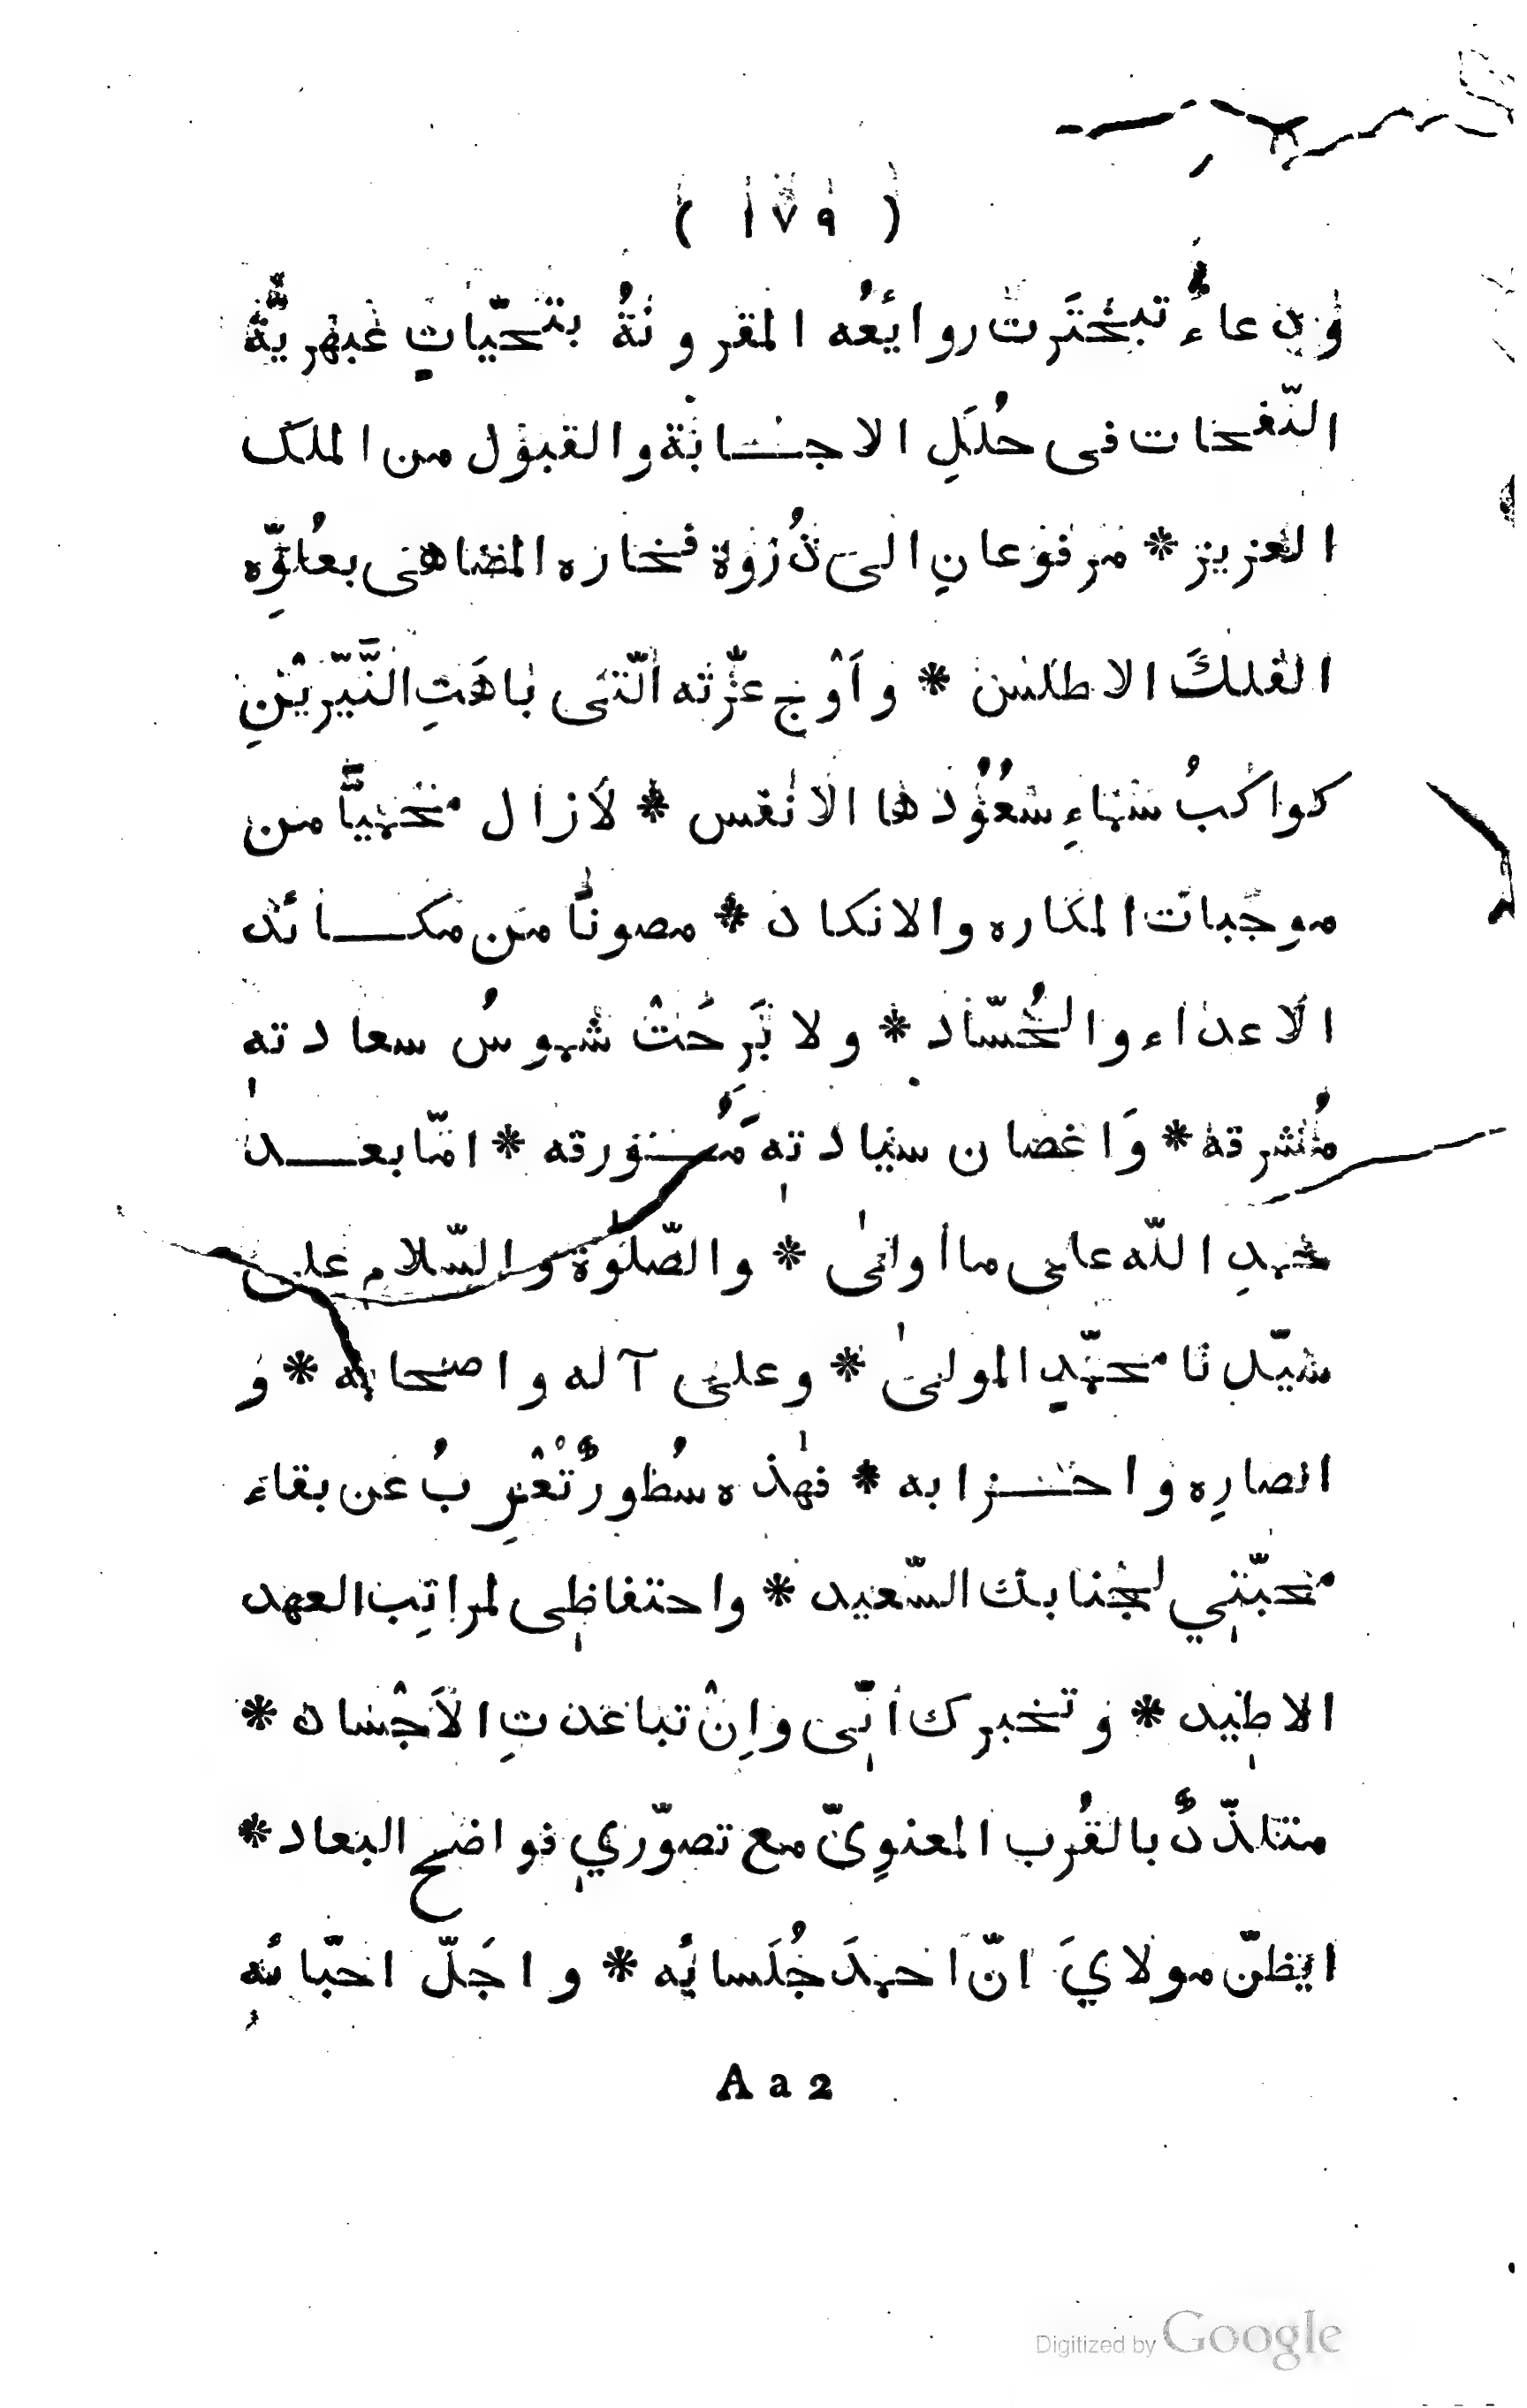 ( ١٧٩ )
ودعاءٌ تبخترَت روائعُه المقرونةُ بتحيّاتٍ عبهريّةٌ
النّفحات فى حُلَلِ الاجابة والقبول من الملك
العزيز * مرفوعانِ الى ذُروة فخاره المضاهى بعلوِّه
الفلكَ الاطلس * واَوْج عزّته الّتى باهَتِ النَّيّريْنِ
كواكبُ سماءِ سُعُوْدها الانفس * لازال محميًّا من
موجبات المكاره والانكاد * مصونًا من مكائد
الاعداء والحُسّاد * ولا بَرِحَتْ شموسُ سعادته
مُشرقة * وَاغصان سيادته مُورقه * امّا بعد
حمدِ اللّه على ما اولىٰ * والصّلوٰة والسّلام على
سيّدنا محمّدٍ المولىٰ * وعلى آله واصحابه * و
انصارِه واحزابه * فهٰذه سُطورٌ تُعْرِبُ عن بقاء
محبّتي لجنابك السّعيد * واحتفاظى لمراتِب العهد
الاطيد * وتخبرك انّى واِنْ تباعدتِ الاَجْساد *
متلذّذٌ بالقُرب المعنوِىّ مع تصوّري فواضح البعاد *
ايظنّ مولايَ انّ احمدَ جُلَسائِه * واجَلّ احبّائه
A a 2
Digitized by Google